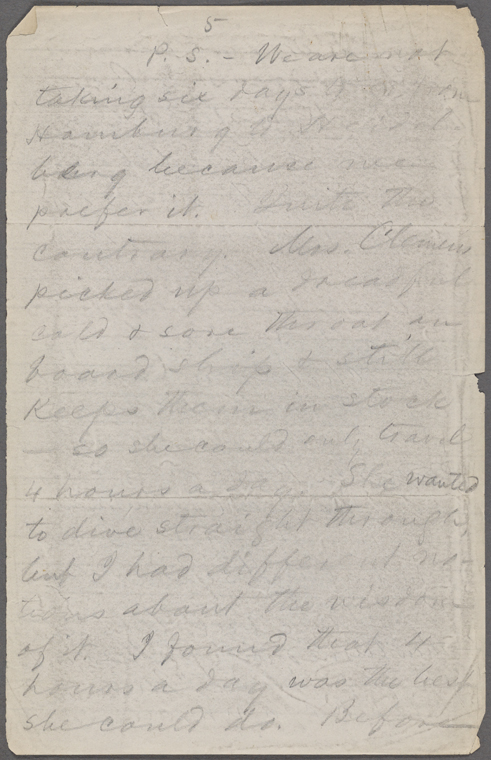 5
P. S. – We are not
taking six days to go from
Hamburg to Heidel-
berg because we
prefer it. Quite the
contrary. Mrs. Clemens
picked up a dreadful
cold & sore throat on
board ship & still
keeps them in stock
— so she could only travel
4 hours a day. She wanted
to dive straight through,
but I had different no-
tions about the wisdom
of it. I found that 4
hours a day was the best
she could do. Before